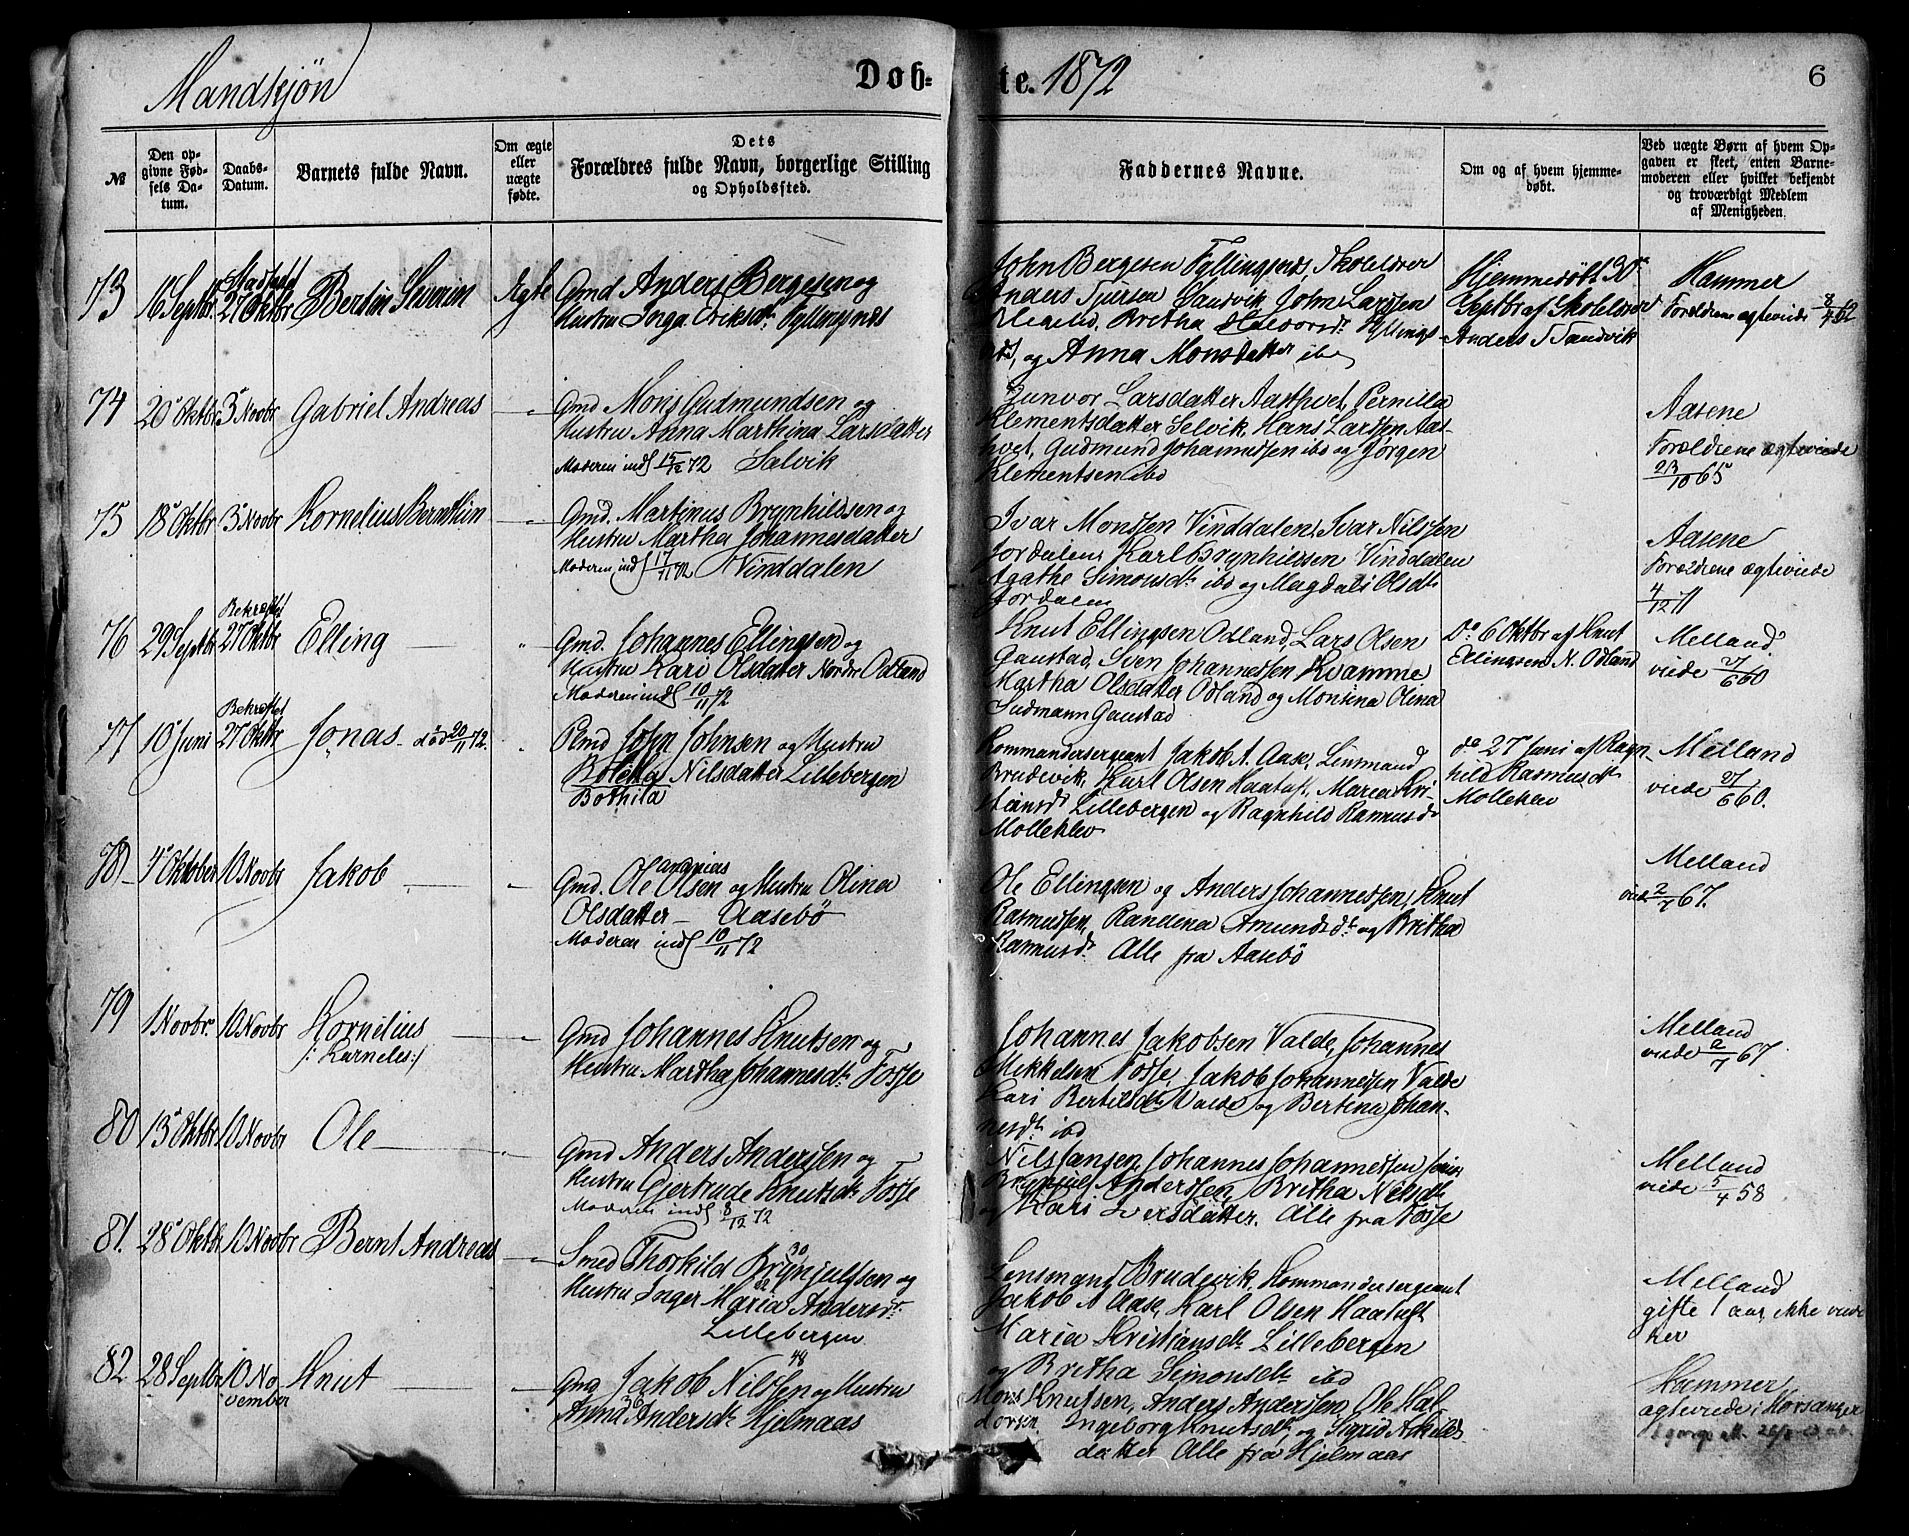 Mandkjøn
Døb-
te. 1872
6
№
Den op-
givne Fød-
sels Da-
tum.
Daabs-
Datum.
Barnets fulde Navn.
Om ægte
eller
uægte
fødte.
Dets
Forældres fulde Navn, borgerlige Stilling
og Opholdssted.
Faddernes Navne.
Om og af hvem hjemme-
døbt.
Ved uægte Børn af hvem Op-
gaven er skeet, enten Barne-
moderen eller hvilket bekjendt
og troværdigt Medlem
af Menigheden.
73
16 Septbr.
Stadfæstet
27 Oktbr
Bertin Severin
Ægte
Gmd Anders Bergesen og
Hustru Inga Eriksdt Fyllingsnæs
John Bergesen Fyllingsnæs, Skolelærer
Anders Tjursen Sandvik, John Larssen
Bretha Halvorsdt Fyllings-
og Anna Monsdatter ibd
Hjemmedøbt 30te
Septbr af Skolelærer
Anders T Sandvik
Hammer
Forældrene ægteviede 8/4 62
74
20 Oktbr
3 Novbr
Gabriel Andreas
Gmd Mons Gudmundsen og
Hustru Anna Marthina Larsdatter
Moderen indl 15/12 72 Selvik
Gunvor Larsdatter Aasthvet, Pernilla
Klementsdatter Selvik, Hans Larssen Aas-
tvet, Gudmund Johannessen ibd og Jørgen
Klementsen ibd
Aasene
Forældrene ægteviede
23/10 65
75
18 Oktbr
3 Novbr
Kornelius Bernthin
Gmd. Martinus Brynhildssen og
Hustru Martha Johannesdatter
Moderen indl 17/11 72 Vinddalen
Ivar Monssen Vinddalen, Ivar Nilssen
Jordalen, Karl Brynhildsen Vinddalen
Agathe Simonsdt ibd og Magdali Olsdt
Jordalen
Aasene
Forældrene ægteviede
4/12 71
76
29 Septbr
Bekræftet
27 Oktbr
Elling
Gmd. Johannes Ellingsen og
Hustru Kari Olsdatter Nordre Odland
Moderen indl 10/11 72
Knut Ellingsen Odland, Lars Olsen
Gaustad, Sven Johannessen Kvamme
Martha Olsdatter Odland og Monsina Olina
Gudmann Gaustad
Do 6 Oktbr af Knut
Ellingsen N. Odland
Melland
viede 27/6 60
77
10 Juni
Bekræftet
27 Oktbr
Jonas død 20/11 72.
Pmd John Johnsen og Hustru
Boletha Nilsdatter Lillebergen
Bothila
Kommandersergeant Jakob A. Aase, Lensmand
Brudevik, Karl Olsen Haatuft, Maria Kri-
stiansdt Lillebergen og Ragnhild Rasmusdt
Molleklev
do 27 Juni af Ragn-
hild Rasmusdt
Molleklev
Melland
viede 27/6 60.
78
4 Oktober
10 Novbr
Jakob
Andreas
Gmd. Ole Olsen og Hustru Olina
Olsdatter - Aasebö
Moderen indl 10/11 72
Ole Ellingsen og Anders Johannessen, Knut
Rasmussen, Randena Amundsdt og Bretha
Rasmusdt Alle fra Aasebö
Melland
viede 2/7 67.
79
1 Novbr.
10 Novbr
Kornelius
/: Karneles :/
Gmd Johannes Knutsen og
Hustru Martha Johannesdt Fosse
Johannes Jakobsen Valde, Johannes
Mikkelsen Fosse, Jakob Johannessen Valde
Kari Bertilsdt Valde og Bertina Johan-
nesdt ibd
Melland
viede 2/7 67
80
13 Oktbr
10 Novbr
Ole
Gmd Anders Anderssen og
Hustru Gjertrude Knutsdt Fosse
Moderen indl 8/12 72
Nils Jansen, Johannes Johannessen
Brynjul Anderssen, Bretha Nilsdt
og Kari Iversdatter. Alle fra Fosse
Melland
viede 5/4 58
81.
28 Oktbr
10 Novbr
Bernt Andreas
30
Smed Thorkild Brynjulfsen og
Hustru Inger Maria Andersdt
Lillebergen
Lensmand Brudevik, Kommandersergeant
Jakob A Aase, Karl Olsen Haatuft
Maria Kristiansdt Lillebergen
og Bretha Simonsdt ibd
Melland
gifte 1 aar, ikke viede
her
82
28 Septbr
10 No-
vember
Knut
48
Gmd Jakob Nilssen og Hustru
Anna Andersdt Hjelmaas
Mons Knutsen, Anders Anderssen, Ole Hal-
dorsen, Ingeborg Knutsdt og Sigrid Askilds-
datter Alle fra Hjelmaas
Hammer
ægteviede i Horsanger